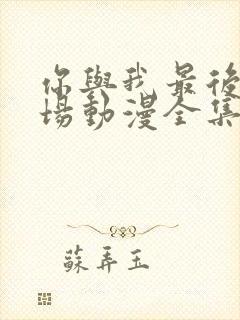 你與我最後
場動漫全集
蘇弄玉